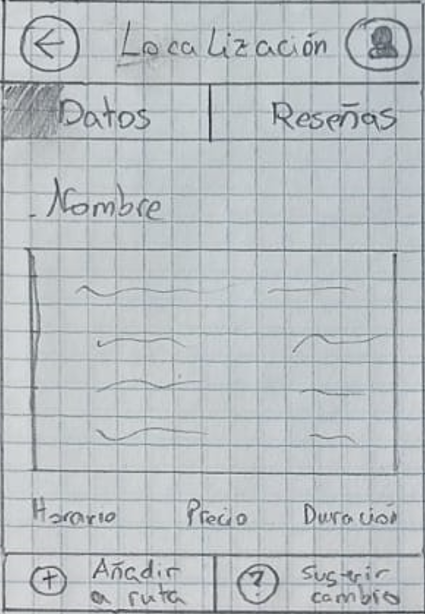 Localización
Datos Reseñas
Nombre
Horario Precio Duración
+ Añadir ? Sugerir
a ruta cambio